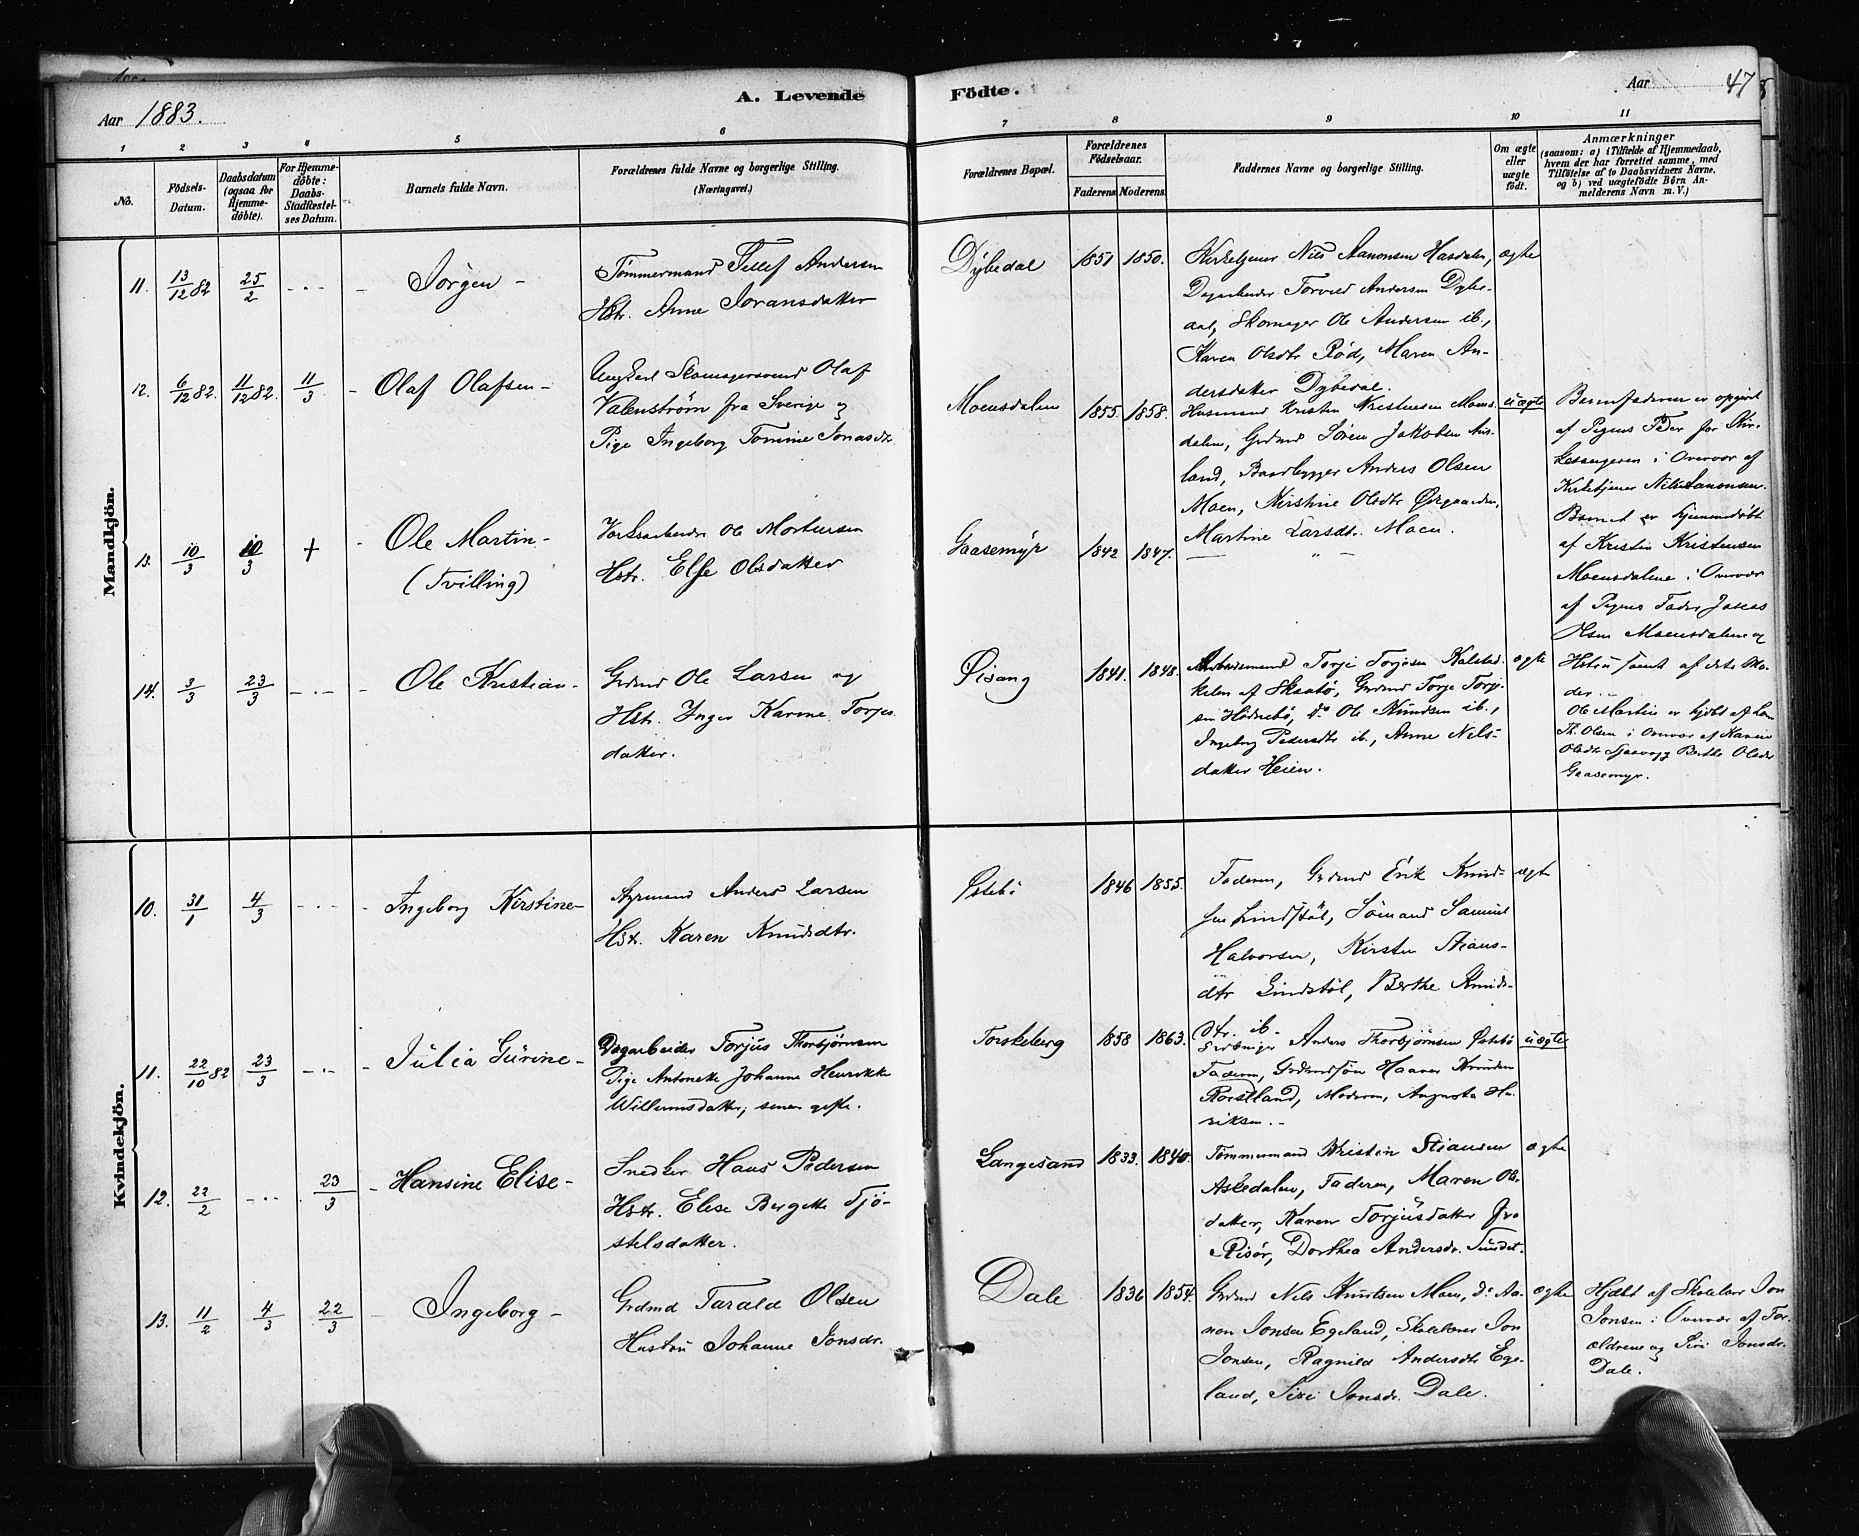 A. Levende Födte.
Aar 1883.
Aar 47
1 2 3 4 5 6 7 8 9 10 11
No.
Födsels-Datum.
Daabsdatum (ogsaa for Hjemme-döbte).
For Hjemme-döbte: Daabs-Stadfæstel-ses Datum.
Barnets fulde Navn.
Forældrenes fulde Navne og borgerlige Stilling.
(Næringsvei.)
Forældrenes Bopæl.
Forældrenes Födselsaar.
Faderens. Moderens.
Faddernes Navne og borgerlige Stilling.
Om ægte eller uægte födt.
Anmærkninger
(saasom: a) i Tilfælde af Hjemmedaab, hvem der har forrettet samme, med Tilföielse af to Daabsvidners Navne, og b) ved uægtefödte Börn An-melderens Navn m. V.)
Mandkjön.
11. 13/12 82 25/2 - . . - Jørgen -
Tømmermand Tellef Andersen
Hstr. Anne Joransdatter
Dybedal 1851 1850.
Kirketjener Nils Aanonsen Hasdalen, ægte
Dagarbeider Torvild Andersen Dybe-
dal, Skomager Ole Andersen ib.,
Karen Olsdtr Rød, Maren An-
dersdatter Dybedal.
12. 6/12 82. 11/12 82. 11/3 - Olaf Olafsen -
Ungkarl Skomagersvend Olaf
Valenstrøm fra Sverige og
Pige Ingeborg Tomine Jonasdtr
Moensdalen 1855. 1858.
Husmand Kristen Kristensen Moens- uægte
dalen, Grdmd Søren Jakobsen
land, Baadbygger Anders Olsen
Moen, Kirstine Olsdtr Øigaarden,
Martine Larsdtr. Moen.
Barnefaderen er opgivet
af Pigens Fader for Kir-
kesangeren i Overvær af
Kirketjener Nils Aanonsen.
Barnet er hjemmedøbt
af Kristen Kristensen
Moensdalene i Overvær
af Pigens Fader Jonas
Olsen Moensdalene og
Hstru samt af dets Mo-
der.
13. 10/3 10/3 + - Ole Martin -
(Tvilling)
Værksarbeider Ole Mortensen
Hstr. Else Olsdatter
Gaasemyr 1842 1847. — " —
Ole Martin er hjdbt af
Th. Olsen i Overvær af Karen
Olsdtr og Berthe Olsdtr
Gaasemyr.
14. 3/3 23/3 - . - - Ole Kristian -
Grdmd Ole Larsen og
Hstr. Inger Karine Torjes
datter.
Øisang 1841. 1848.
Arbeidsmand Torje Torjesen Kalsted- ægte
kilen af Skaatø, Grdmd Torje Torje-
sen Hødnebø, do Ole Knudsen ib.,
Ingeborg Pedersdtr ib., Anne Nils-
datter Heien.
Kvindekjön.
10. 31/1 4/3 - . . - Ingeborg Kirstine -
Styrmand Anders Larsen
Hstr. Karen Knudsdtr.
Østebø 1846 1855.
Faderen, Grdmd Erik Knud- ægte
sen Lindstøl, Sømand Samuel
Halvorsen, Kirsten Stians-
dtr Lindstøl, Berthe Knuds-
dtr. ib.
11. 22/10 82 23/3 - . - Julia Gurine -
Dagarbeider Torjus Thorbjørnsen
Pige Antonette Johanne Henrikke
Willumsdatter, senere gifte.
Torskeberg 1858 1863.
Anders Thorbjørnsen Østebø uægte
Faderen, Grdmdsøn Haaver Knudsen
Rørstland, Moderen, Augusta Hen-
riksen.
12. 22/2 - . . 23/3 - Hansine Elise -
Snedker Hans Pedersen
Hstr. Elise Bergette Tjø-
stelsdatter.
Langesand 1833. 1840.
Tømmermand Kristen Stiansen ægte
Askedalen, Faderen, Maren Ols-
datter, Karen Torjusdatter fra
Risør, Dorthea Andersdr. Sundet.
13. 11/2 4/3 22/3 - Ingeborg -
Grdmd Tarald Olsen
Hustru Johanne Jonsdr.
Dale 1836 1854.
Grdmd Nils Knutsen Moen, do Aa- ægte
non Jonsen Egeland, Skolelærer Jon
Jonsen, Ragnild Andersdtr Ege-
land, Siri Jonsdr. Dale.
Hjdbt af Skolelær Jon
Jonsen i Overvær af For-
ældrene og Siri Jonsdr.
Dale.